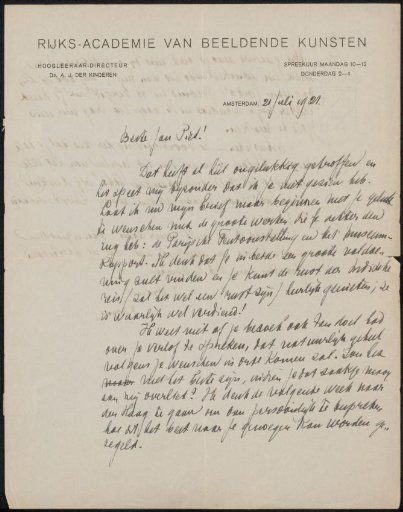 RIJKS-ACADEMIE VAN BEELDENDE KUNSTEN
HOOGLEERAAR-DIRECTEUR
DR. A. J. DER KINDEREN
SPREEKUUR MAANDAG 10–12
DONDERDAG 2–4
AMSTERDAM, 21 Juli 1921.
Beste Jan Piet!
Dat heeft al heel ongelukkig getroffen en
het speet mij bijzonder dat ik je niet gezien heb.
Laat ik nu mijn brief maar beginnen met je geluk
te wenschen met de groote werken die je achter den
rug heb: de Parijsche Tentoonstelling en het museum-
Rapport. Ik denk dat je in beide een groote voldoe-
ning zult vinden en je kunt de rust der
reis (zal het wel een rust zijn?) heerlijk genieten; ze
is waarlijk wel verdiend!
Ik weet niet of je bezoek ook ten doel had
over je verlof te spreken, dat natuurlijk geheel
volgens je wenschen in orde komen zal. Zou het
niet het beste zijn, indien je dat aan
mij overliet? Ik denk de volgende week naar
den Haag te gaan om dan persoonlijk te bespreken
hoe dit het best naar je genoegen kan worden ge-
regeld.